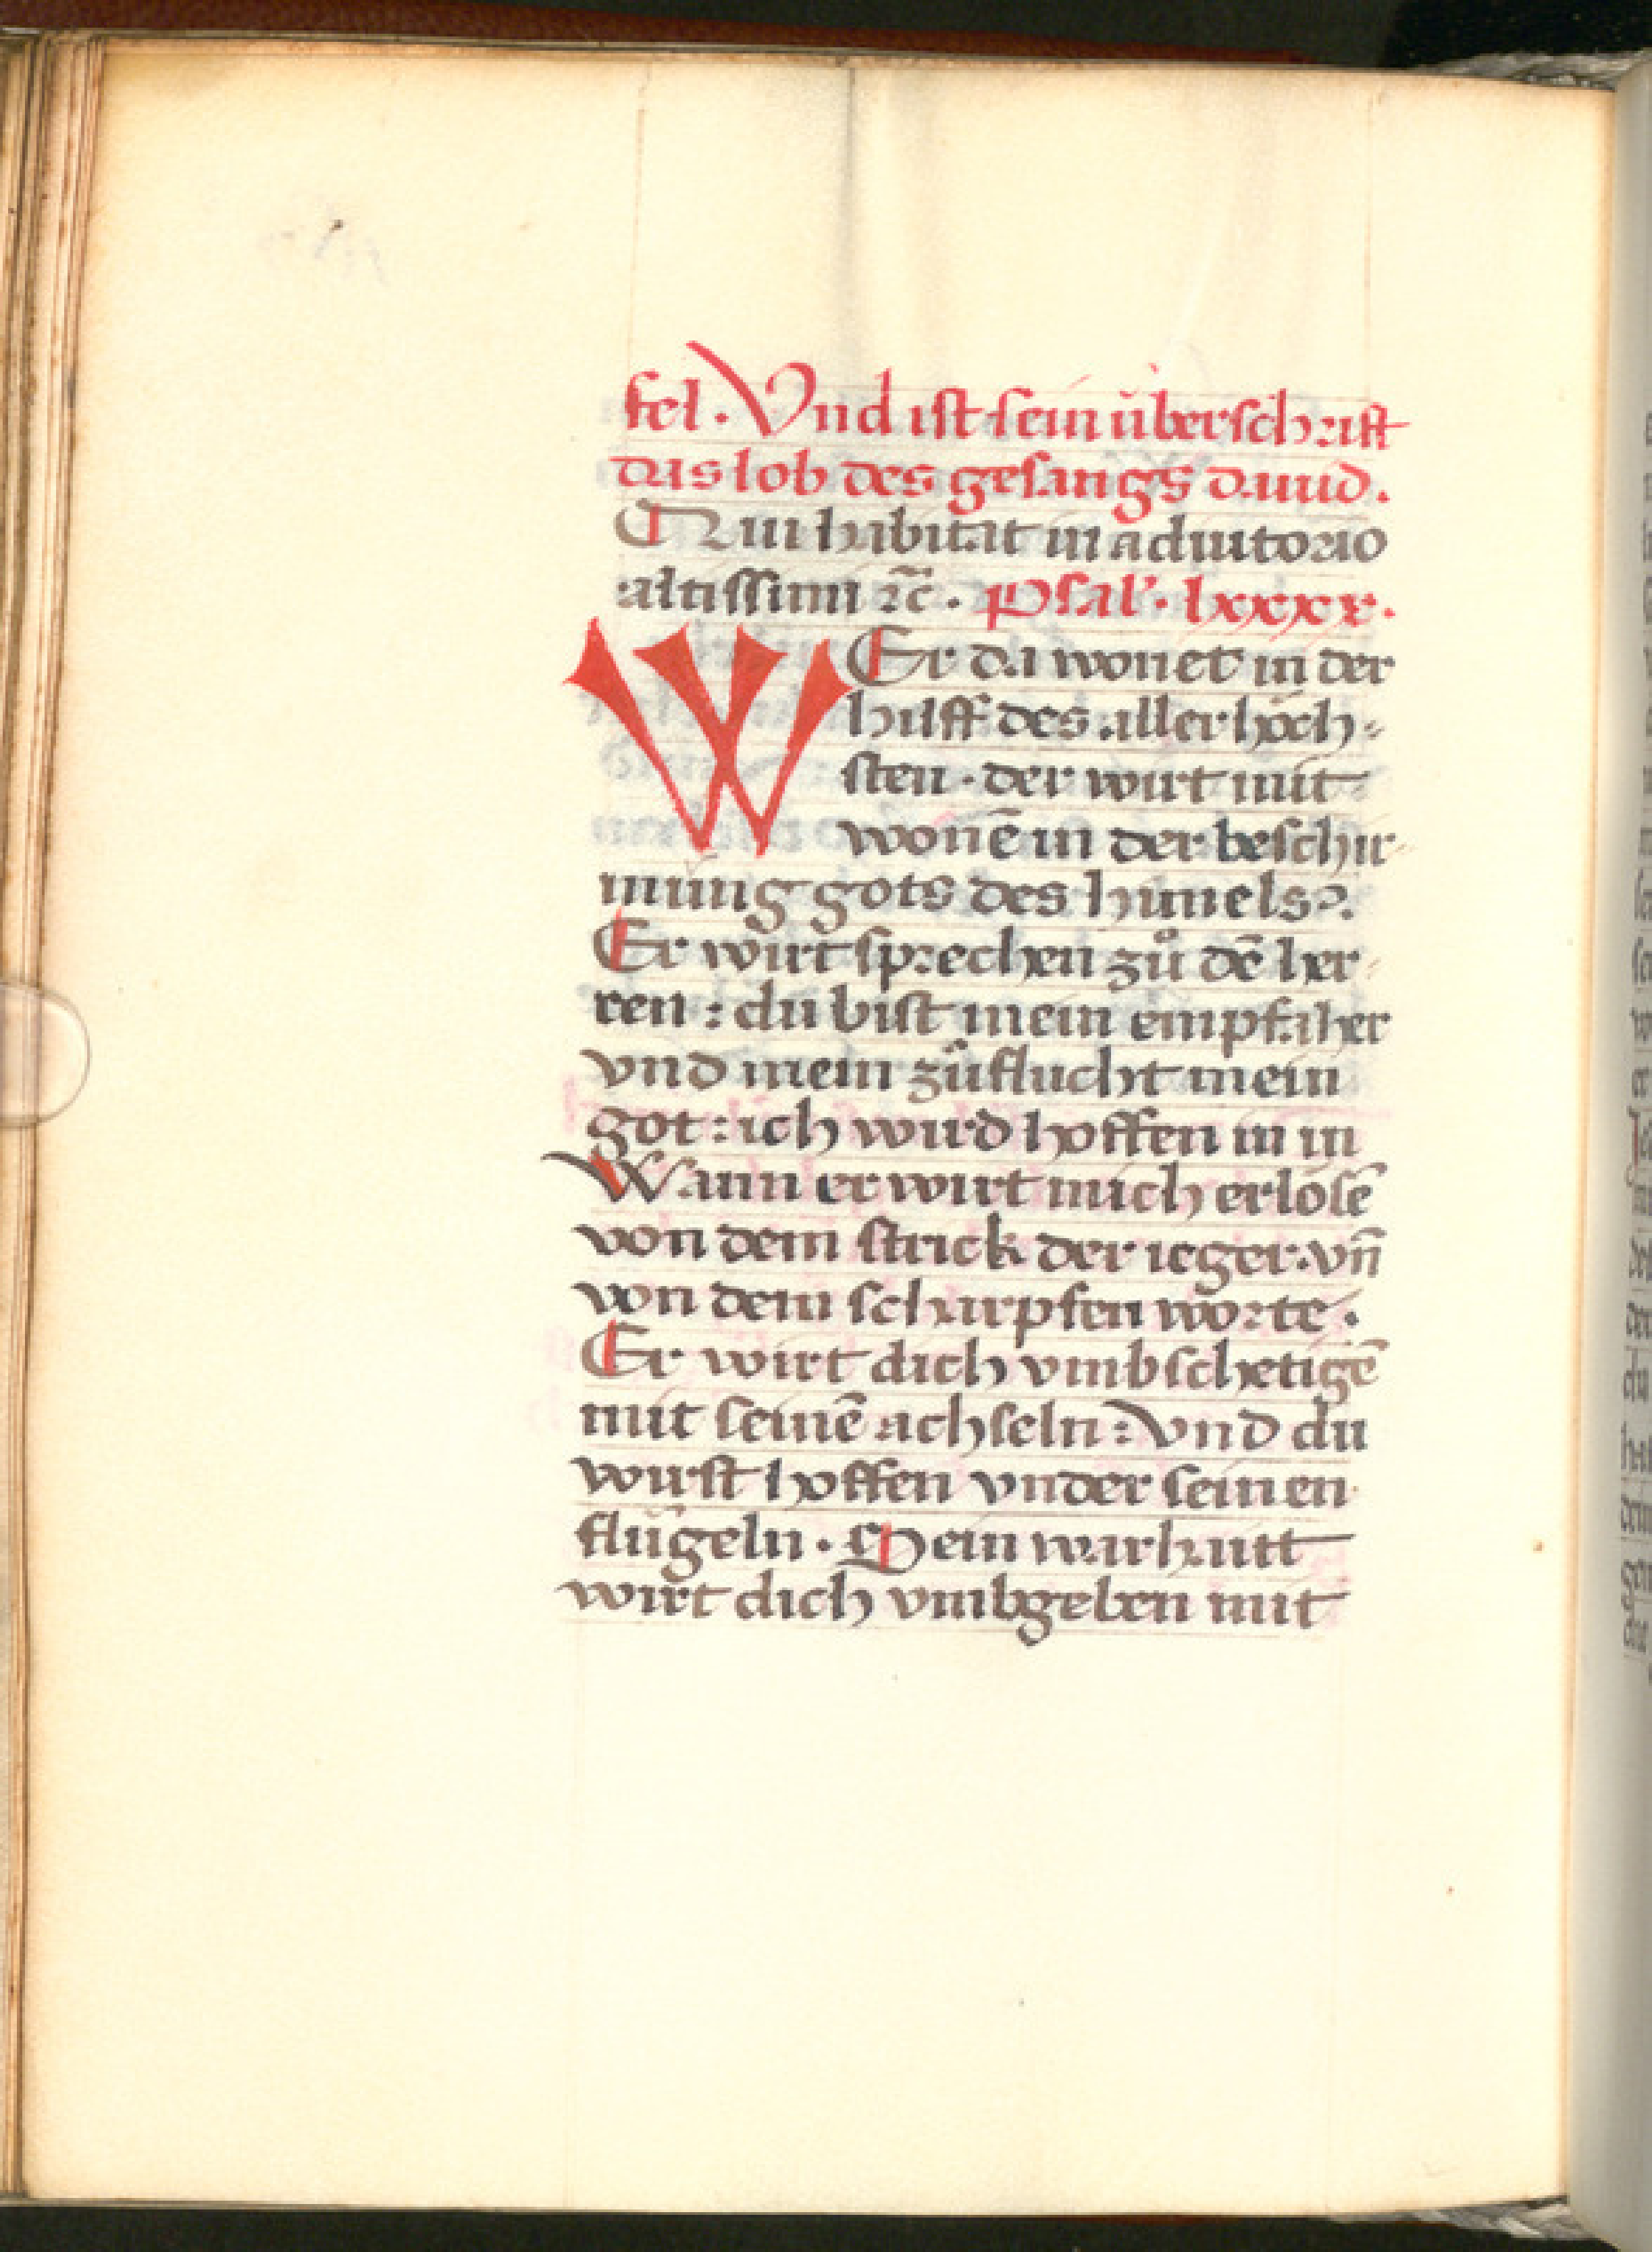 fel. Vnd ist sein überschrift
das lob des gesangs dauid.
Qui habitat in adiutorio
altissimi ꝛc̄. Psal'. lxxxx.
WEr da wonet in der
hilff des allerhöch⸗
sten. der wirt mit⸗
wonē in der beschir⸗
mŭng gots des himels.
Er wirt sprechen zů dē her⸗
ren: du bist mein empfaher
vnd mein zůflucht mein
got: ich wird hoffen in in
Wann er wirt mich erlösē
von dem strick der ieger. vn̄
von dem scharpfen worte.
Er wirt dich vmbschetigē
mit seinē achseln: Vnd du
wirst hoffen vnder seinen
flŭgeln. Sein warhait
wirt dich vmbgeben mit